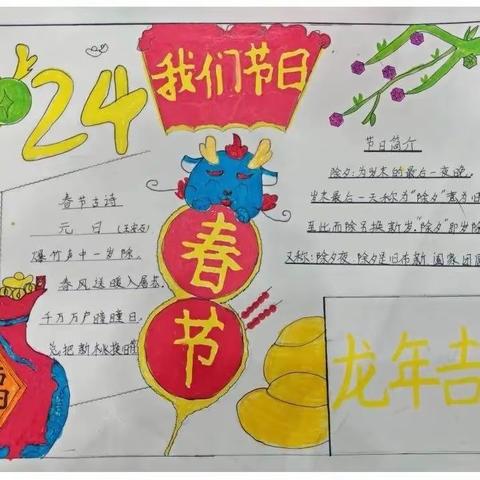 24
我们节日
春节古诗
元日 (王安石)
爆竹声中一岁除,
春风送暖入屠苏.
千万万户曈曈日,
总把新桃换旧符
春节
节日简介
除夕:为岁末的最后一夜晚.
岁末最后一天称为"除夕"意为旧
至此而除另换新岁."除夕"即岁除
又称:除夕夜.除夕是旧布新阖家团圆
龙年吉